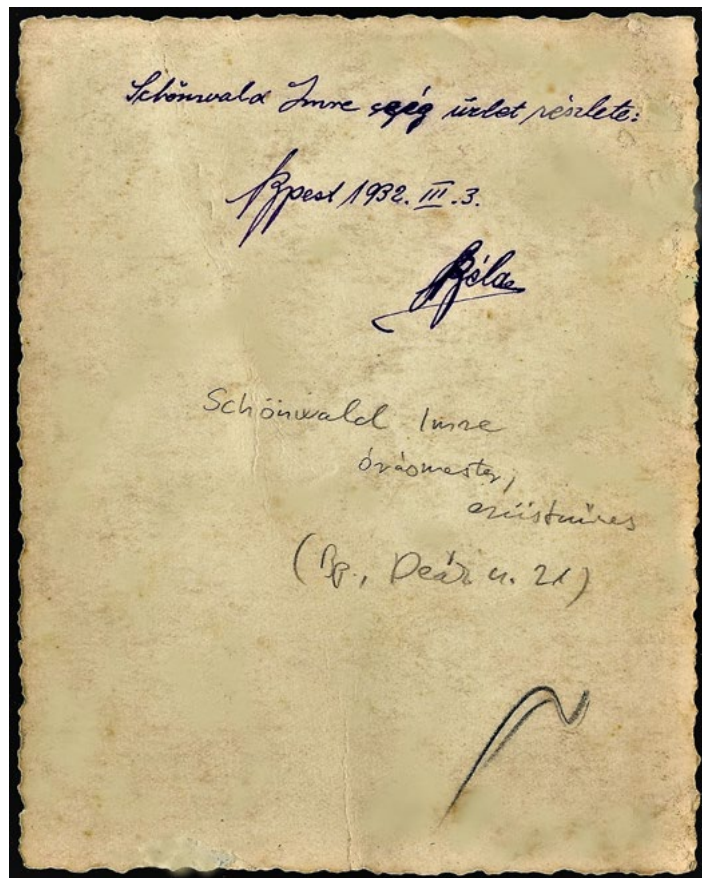 Schönwald Imre cég üzlet részlete:
Bpest 1932. III. 3.
Béla
Schönwald Imre
órásmester,
ezüstműves
(Bp., Deák u. 21)